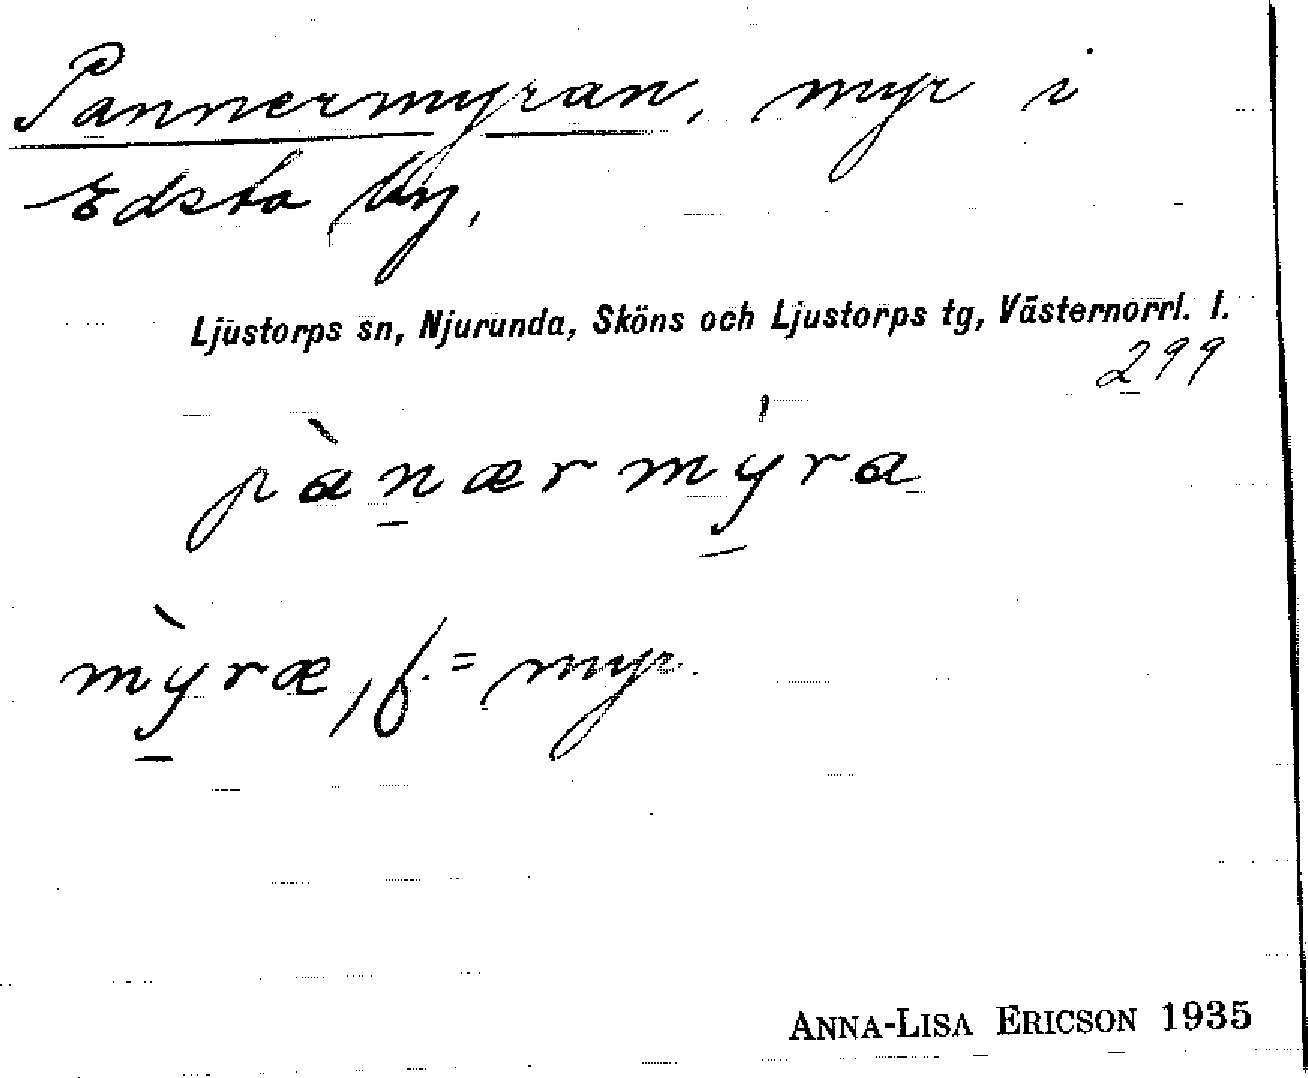 Pannermyran, myr i
Edsta by,
Ljustorps sn, Njurunda, Sköns och Ljustorps tg, Västernorrl. l.
299
pànærmýra
mỳræ, f. = myr.
ANNA-LISA ERICSON 1935